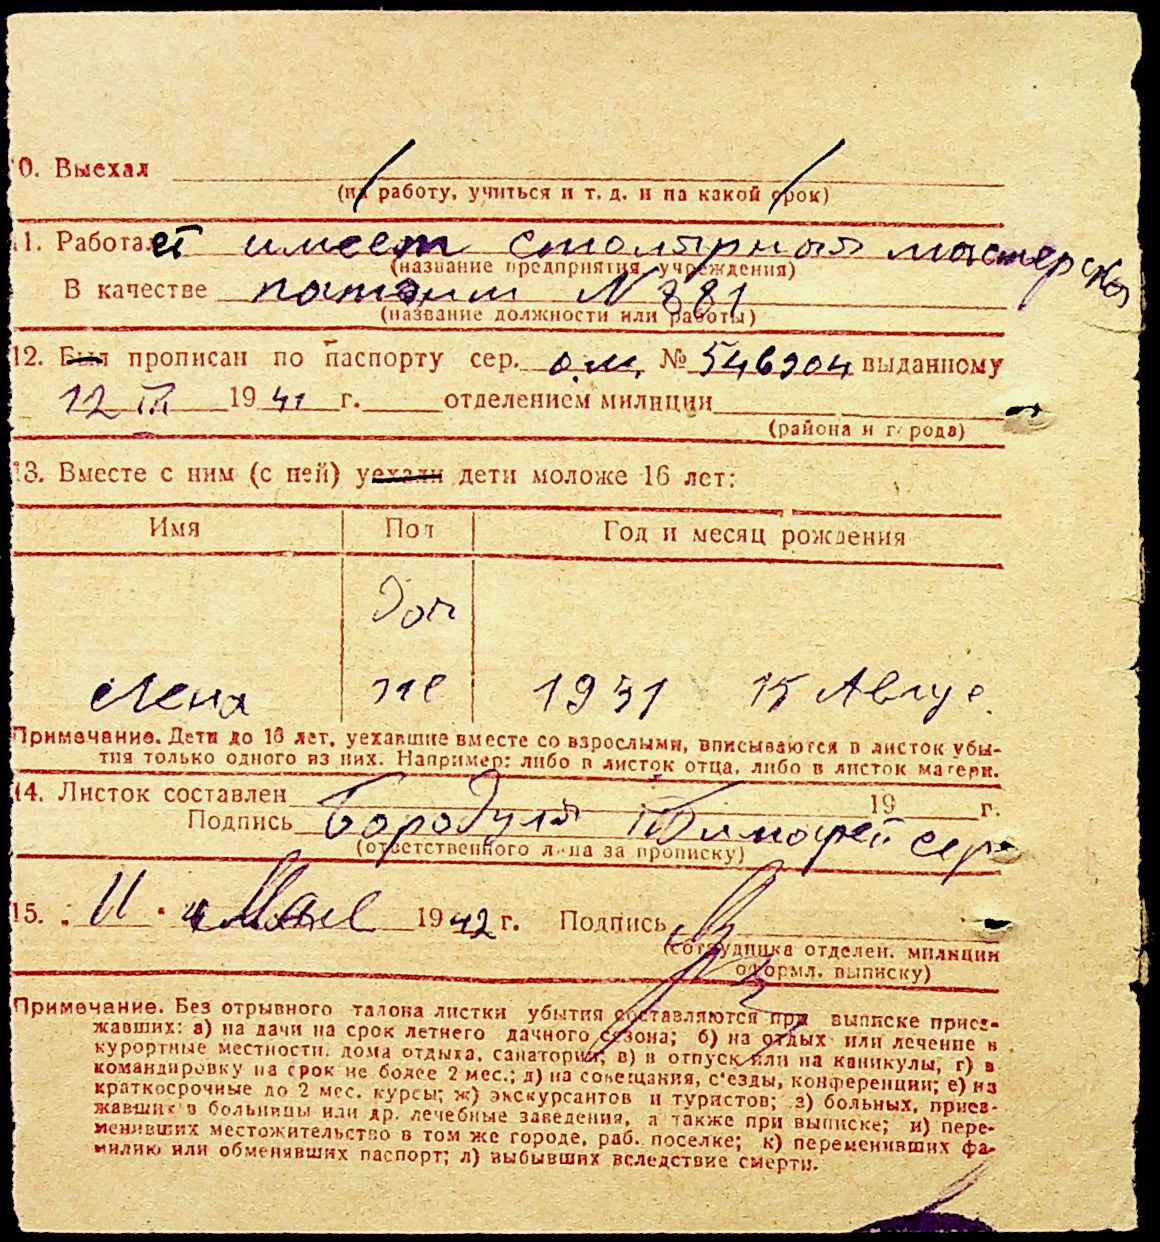 0. Выехал
(на работу, учиться и т. д. и на какой срок)
11. Работает имеет столярный мастерска
(название предприятия, учреждения)
В качестве патэнт N 881
(название должности или работы)
12. Был прописан по паспорту сер. о.м. № 546904 выданному
12 III 1941 г. отделением милиции
(района и города)
13. Вместе с ним (с ней) уехали дети моложе 16 лет:
Имя Пол Год и месяц рождения
Доч
Леня же 1931 15 Авгус.
Примечание. Дети до 16 лет, уехавшие вместе со взрослыми, вписываются в листок убы-
тия только одного из них. Например: либо в листок отца, либо в листок матери.
14. Листок составлен 19 г.
Подпись Бородуля Тимофей сер
(ответственного лица за прописку)
15. 11 Мае 1942 г. Подпись
(сотрудника отделен. милиции
оформл. выписку)
Примечание. Без отрывного талона листки убытия составляются при выписке приез-
жавших: а) на дачи на срок летнего дачного сезона; б) на отдых или лечение в
курортные местности, дома отдыха, санатории; в) в отпуск или на каникулы; г) в
командировку на срок не более 2 мес.; д) на совещания, с'езды, конференции; е) на
краткосрочные до 2 мес. курсы; ж) экскурсантов и туристов; з) больных, приез-
жавших в больницы или др. лечебные заведения, а также при выписке; и) пере-
менивших местожительство в том же городе, раб. поселке; к) переменивших фа-
милию или обменявших паспорт; л) выбывших вследствие смерти.